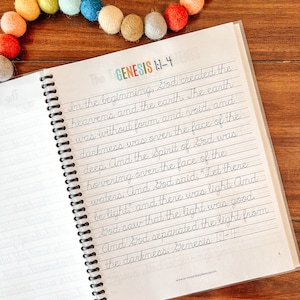 GENESIS 1:1-4
In the beginning, God created the
heavens and the earth. The earth
was without form and void, and
darkness was over the face of the
deep. And the Spirit of God was
hovering over the face of the
waters. And God said, "Let there
be light," and there was light. And
God saw that the light was good.
And God separated the light from
the darkness. Genesis 1:1-4